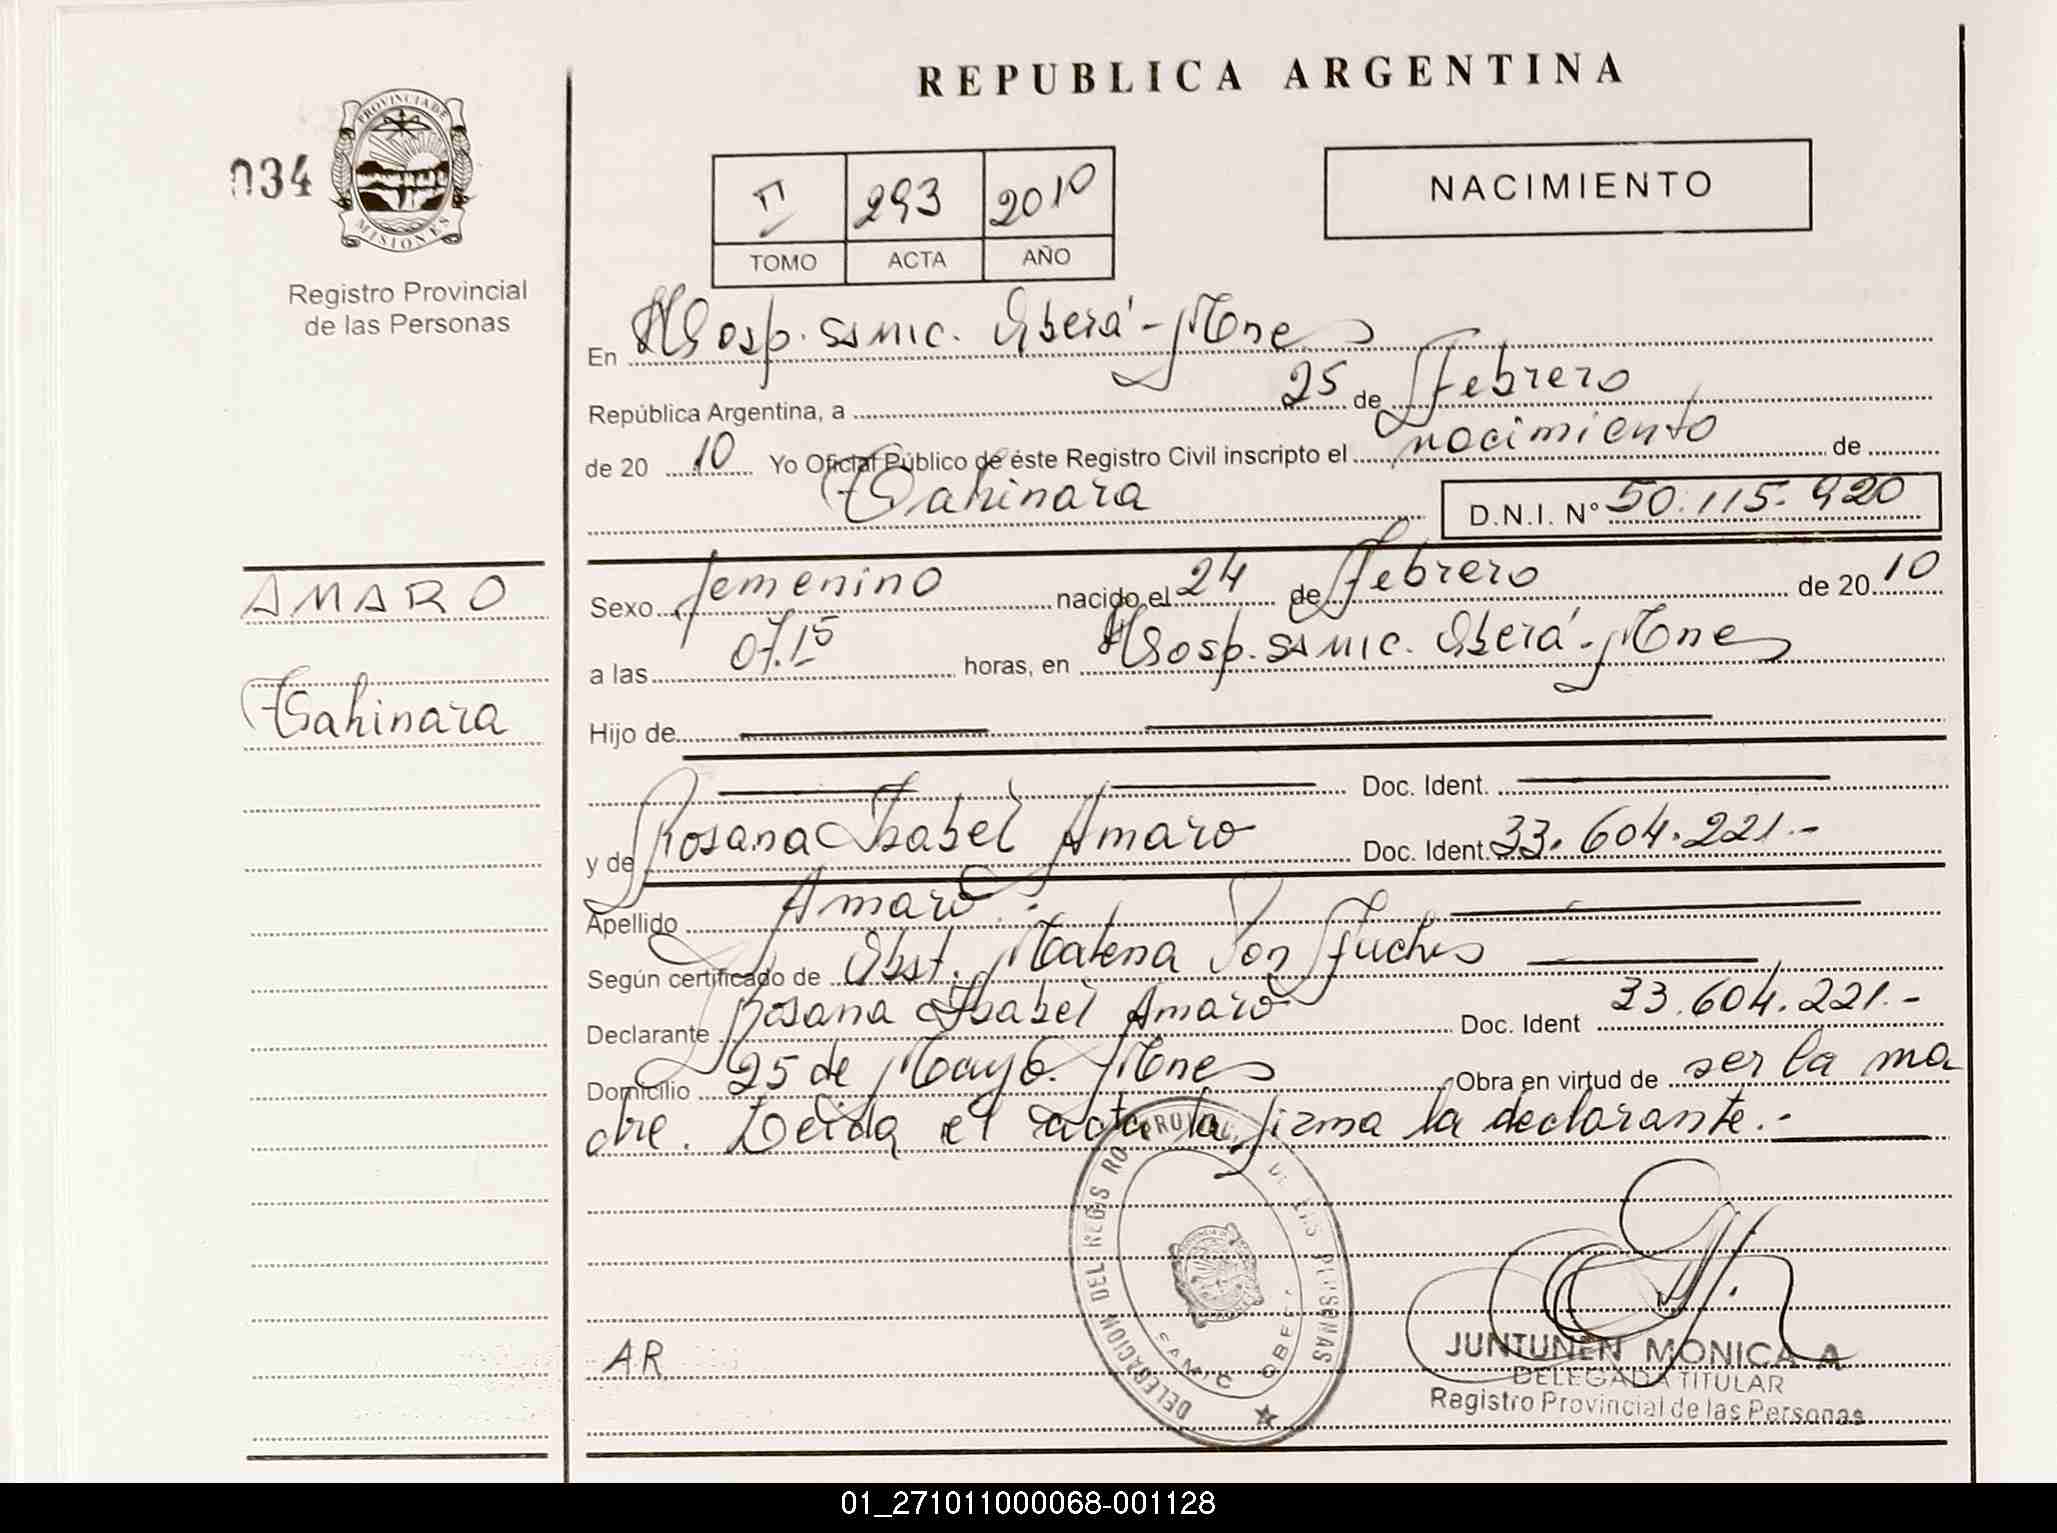 REPUBLICA ARGENTINA
034
PROVINCIA DE
MISIONES
Registro Provincial
de las Personas
II 293 2010
TOMO ACTA AÑO
NACIMIENTO
En Hosp. SAMIC. Oberá - Mnes
República Argentina, a 25 de Febrero
de 20 10 Yo Oficial Público de éste Registro Civil inscripto el nacimiento de
Tahinara D.N.I. N° 50.115.920
AMARO
Tahinara
Sexo femenino nacido el 24 de Febrero de 20 10
a las 07.15 horas, en Hosp. SAMIC. Oberá - Mnes
Hijo de
Doc. Ident.
y de Rosana Isabel Amaro Doc. Ident. 33.604.221.-
Apellido Amaro.-
Según certificado de Obst. Malena Von Fuchs
Declarante Rosana Isabel Amaro Doc. Ident 33.604.221.-
Domicilio 25 de Mayo. Mnes Obra en virtud de ser la ma
dre. Leida el acta la firma la declarante.-
DELEGACION DEL REGISTRO PROVINCIAL DE LAS PERSONAS
SAMIC OBERA
AR
JUNTUNEN MONICA A
DELEGADA TITULAR
Registro Provincial de las Personas
01_271011000068-001128